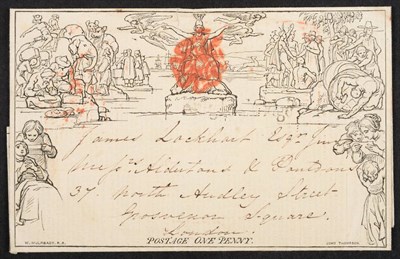 James Lockhart Esqr Junr
37 North Audley Street
Grosvenor Square.
London.
POSTAGE ONE PENNY.
W. MULREADY. R.A.
JOHN THOMPSON